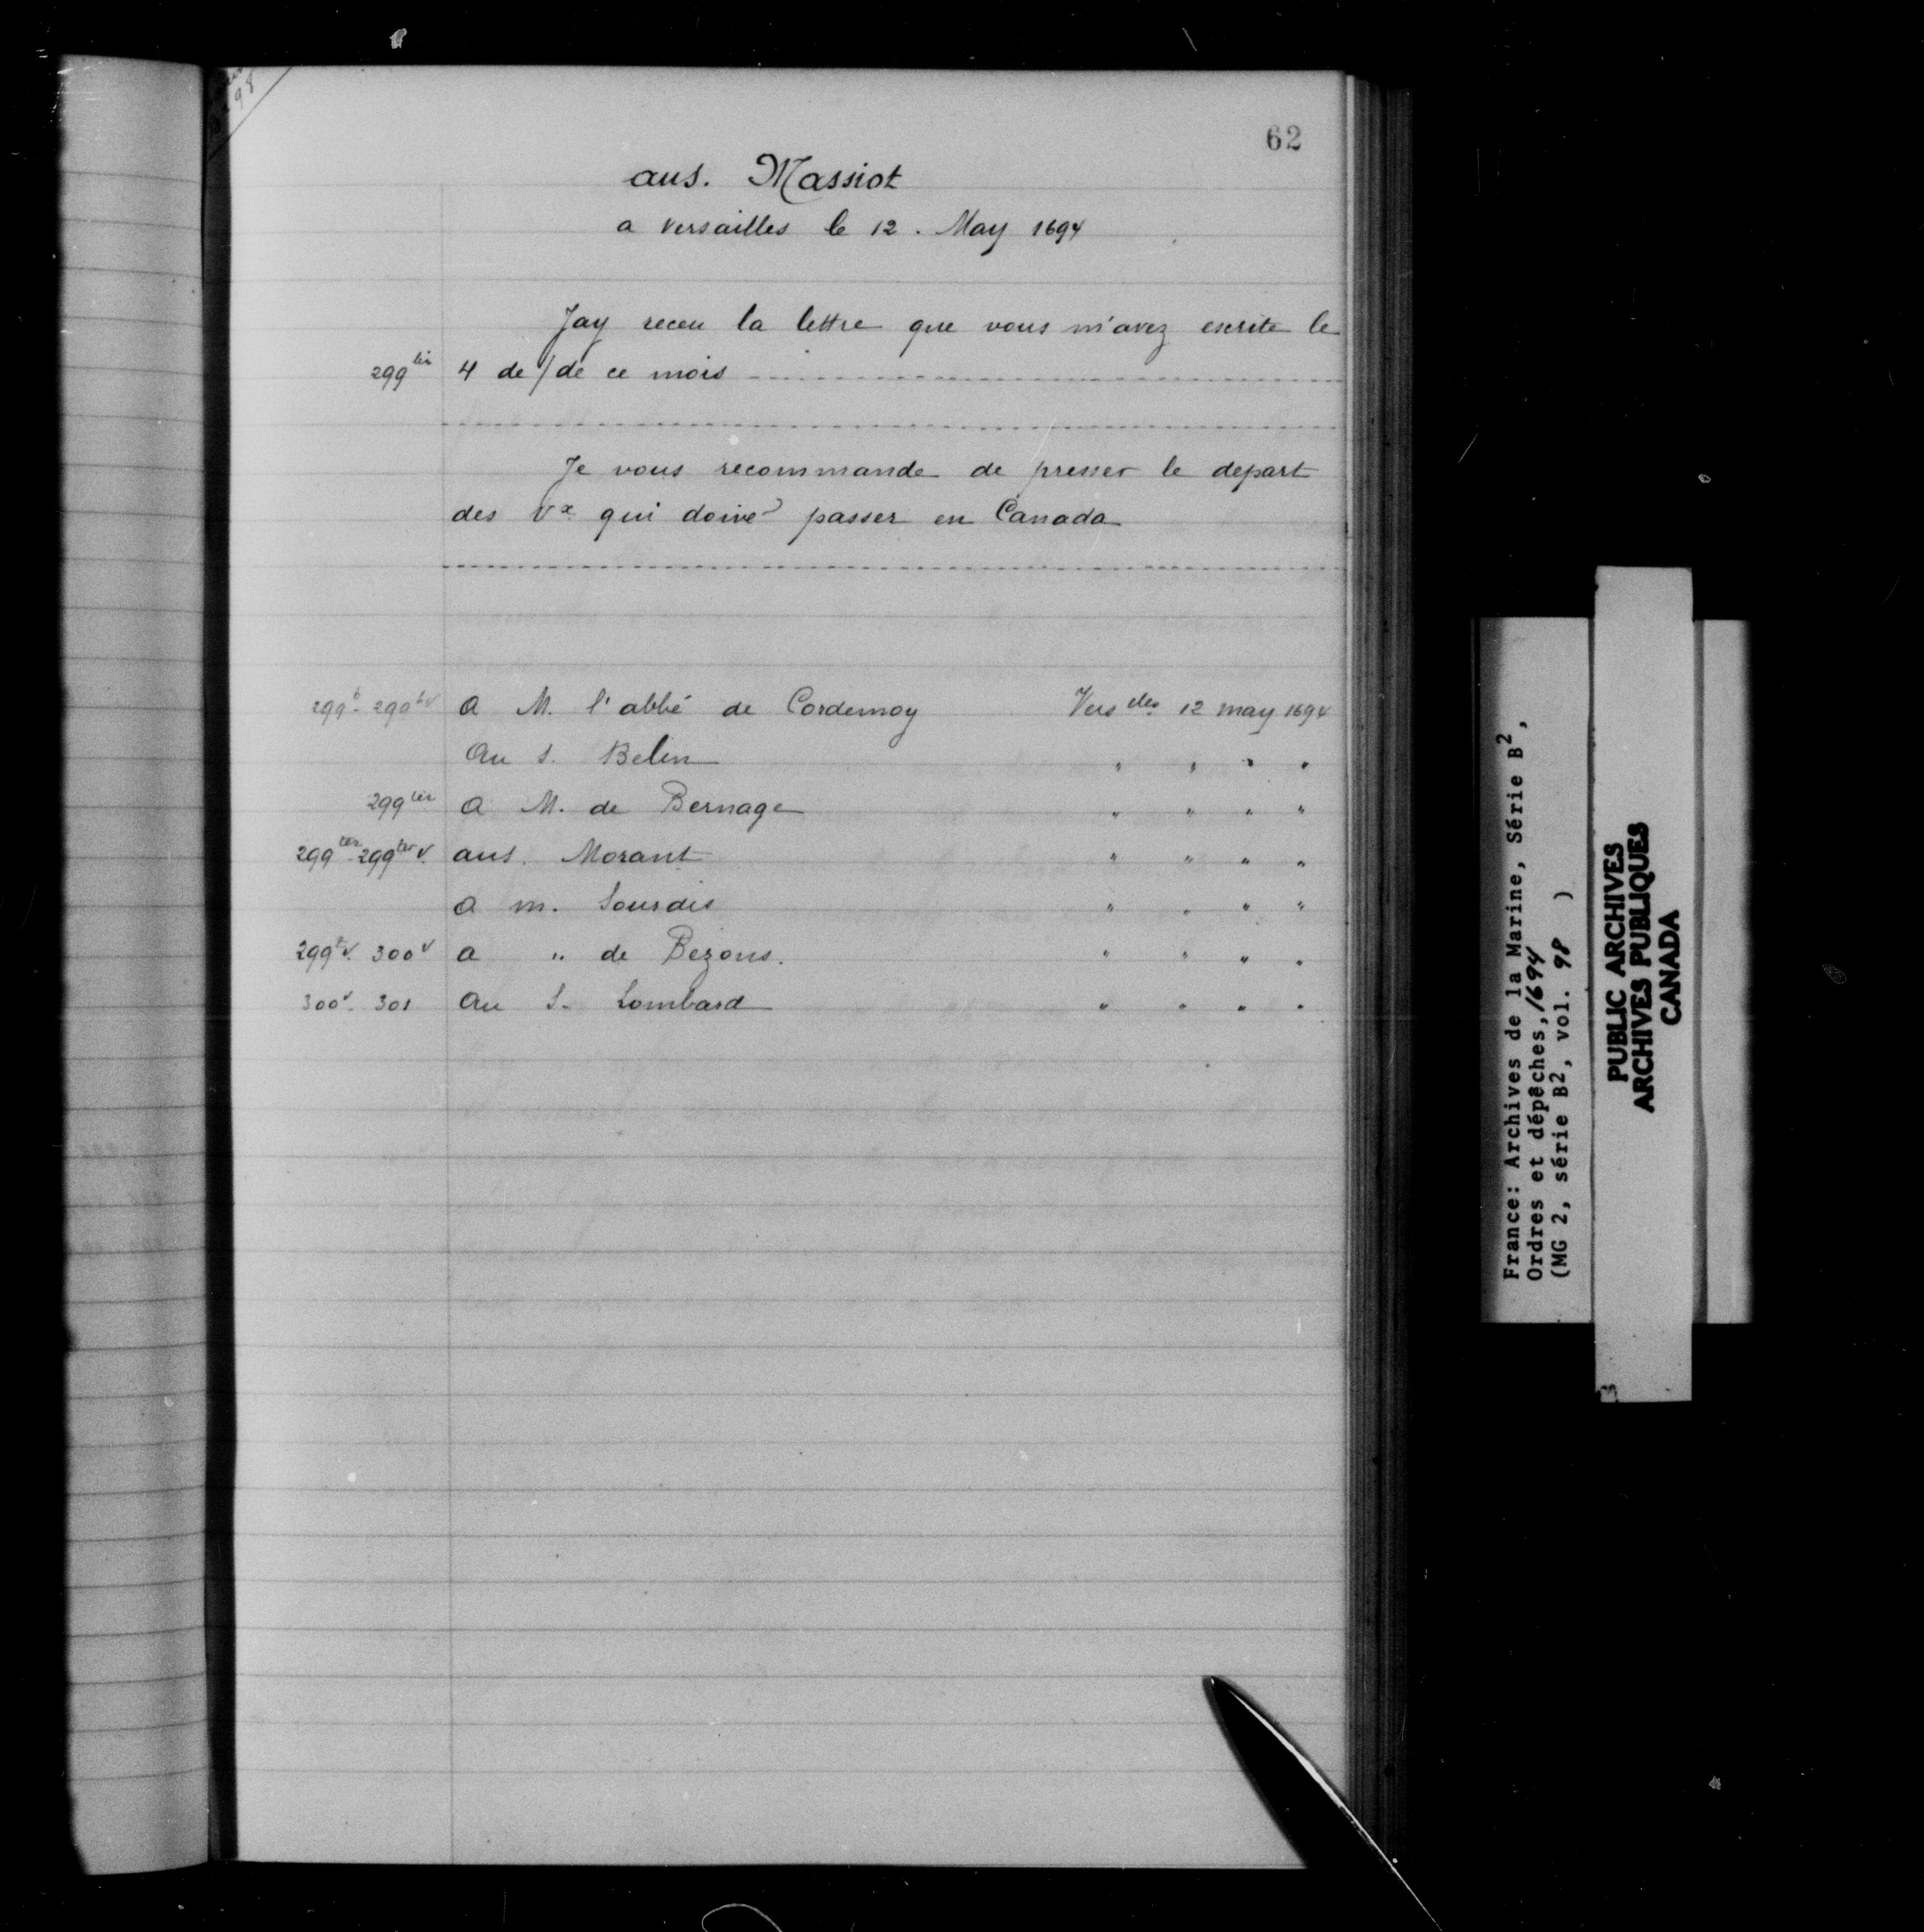 98
62
aus. Massiot
a versailles le 12. May 1694
Jay receu la lettre que vous m'avez escrite le
299 bis 4 de / de ce mois
Je vous recommande de presser le depart
des Vx qui doive passer en Canada
299 b - 299 bv A M. l'abbé de Cordemoy Vers des 12 may 1694
Au S. Belin " " " "
299 ter A M. de Bernage " " " "
299 ter - 299 ter v. aus. Morant " " " "
A m. Sourdis " " " "
299 t v. 300 v a " de Bezons. " " " "
300 v. 301 Au S. Lombard " " " "
France: Archives de la Marine, Série B2,
Ordres et dépêches, 1694
(MG 2, série B2, vol. 98 )
PUBLIC ARCHIVES
ARCHIVES PUBLIQUES
CANADA